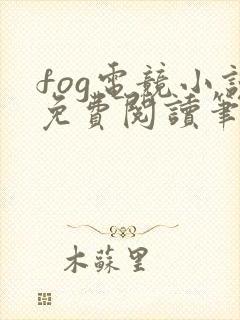 fog電競小説
免費閱讀筆
木蘇里